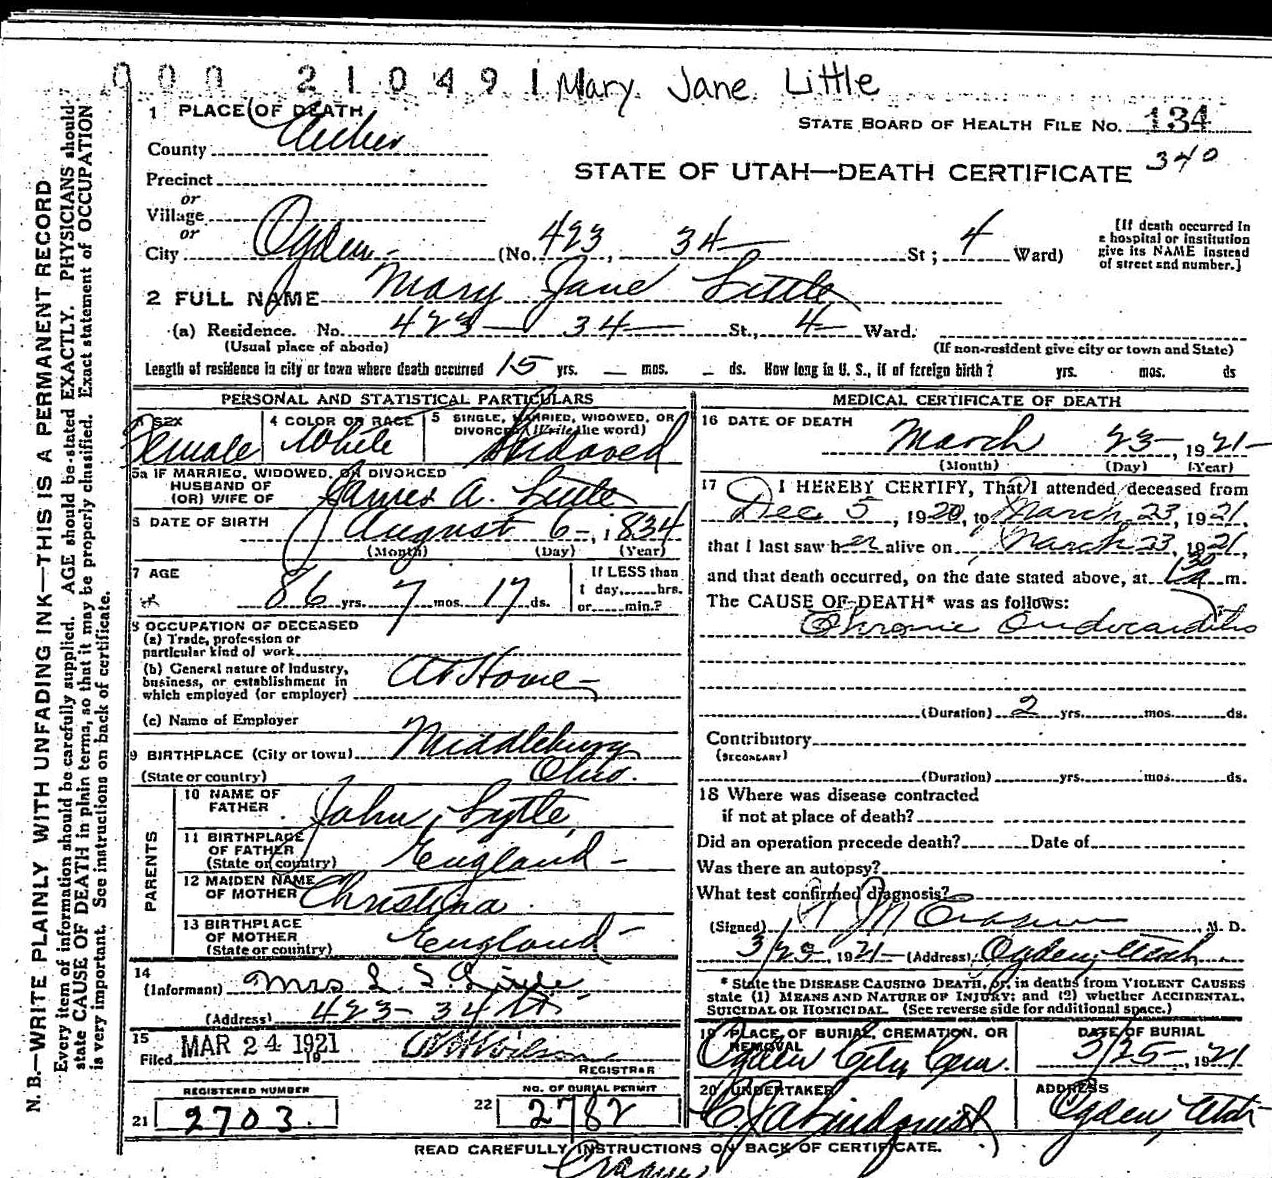 000 210491 Mary Jane Little
1 PLACE OF DEATH
STATE BOARD OF HEALTH FILE NO. 134
County Weber
340
STATE OF UTAH—DEATH CERTIFICATE
Precinct
or
Village
or
City Ogden (No. 423, 34 St; 4 Ward)
[If death occurred in
a hospital or institution
give its NAME instead
of street and number.]
2 FULL NAME Mary Jane Little
(a) Residence. No. 423 34 St., 4 Ward.
(Usual place of abode) (If non-resident give city or town and State)
Length of residence in city or town where death occurred 15 yrs. — mos. — ds. How long in U. S., if of foreign birth? yrs. mos. ds
PERSONAL AND STATISTICAL PARTICULARS
3 SEX Female
4 COLOR OR RACE White
5 SINGLE, MARRIED, WIDOWED, OR
DIVORCED (Write the word)
Widowed
5a IF MARRIED, WIDOWED, OR DIVORCED
HUSBAND OF
(OR) WIFE OF James A. Little
6 DATE OF BIRTH August 6-, 1834
(Month) (Day) (Year)
7 AGE
86 yrs. 7 mos. 17 ds.
If LESS than
1 day,......hrs.
or......min.?
8 OCCUPATION OF DECEASED
(a) Trade, profession or
particular kind of work
(b) General nature of Industry,
business, or establishment in
which employed (or employer) At Home
(c) Name of Employer
9 BIRTHPLACE (City or town) Middlebury
(State or country) Ohio.
PARENTS
10 NAME OF
FATHER John Lytle
11 BIRTHPLACE
OF FATHER
(State or country) England
12 MAIDEN NAME
OF MOTHER Christina
13 BIRTHPLACE
OF MOTHER
(State or country) England
14
(Informant) Mrs
(Address) 423- 34 St
15
Filed MAR 24 1921 19 Wilson
REGISTRAR
REGISTERED NUMBER
21 2703
NO. OF BURIAL PERMIT
22 2782
MEDICAL CERTIFICATE OF DEATH
16 DATE OF DEATH
March 23-, 1921-
(Month) (Day) (Year)
17 I HEREBY CERTIFY, That I attended deceased from
Dec 5, 1920, to March 23, 1921,
that I last saw her alive on March 23, 1921,
and that death occurred, on the date stated above, at 1 30 a m.
The CAUSE OF DEATH* was as follows:
Chronic Endocarditis
(Duration) 2 yrs. mos. ds.
Contributory
(SECONDARY)
(Duration) yrs. mos. ds.
18 Where was disease contracted
if not at place of death?
Did an operation precede death? Date of
Was there an autopsy?
What test confirmed diagnosis?
(Signed) , M. D.
3/23, 1921- (Address) Ogden, Utah
* State the DISEASE CAUSING DEATH, or, in deaths from VIOLENT CAUSES
state (1) MEANS AND NATURE OF INJURY; and (2) whether ACCIDENTAL,
SUICIDAL OR HOMICIDAL. (See reverse side for additional space.)
19 PLACE OF BURIAL, CREMATION, OR
REMOVAL
Ogden City Cem.
DATE OF BURIAL
3/25-, 1921
20 UNDERTAKER
Lindquist
ADDRESS
Ogden, Utah
READ CAREFULLY INSTRUCTIONS ON BACK OF CERTIFICATE.
N. B.—WRITE PLAINLY WITH UNFADING INK—THIS IS A PERMANENT RECORD
Every item of information should be carefully supplied. AGE should be stated EXACTLY. PHYSICIANS should
state CAUSE OF DEATH in plain terms, so that it may be properly classified. Exact statement of OCCUPATION
is very important. See instructions on back of certificate.